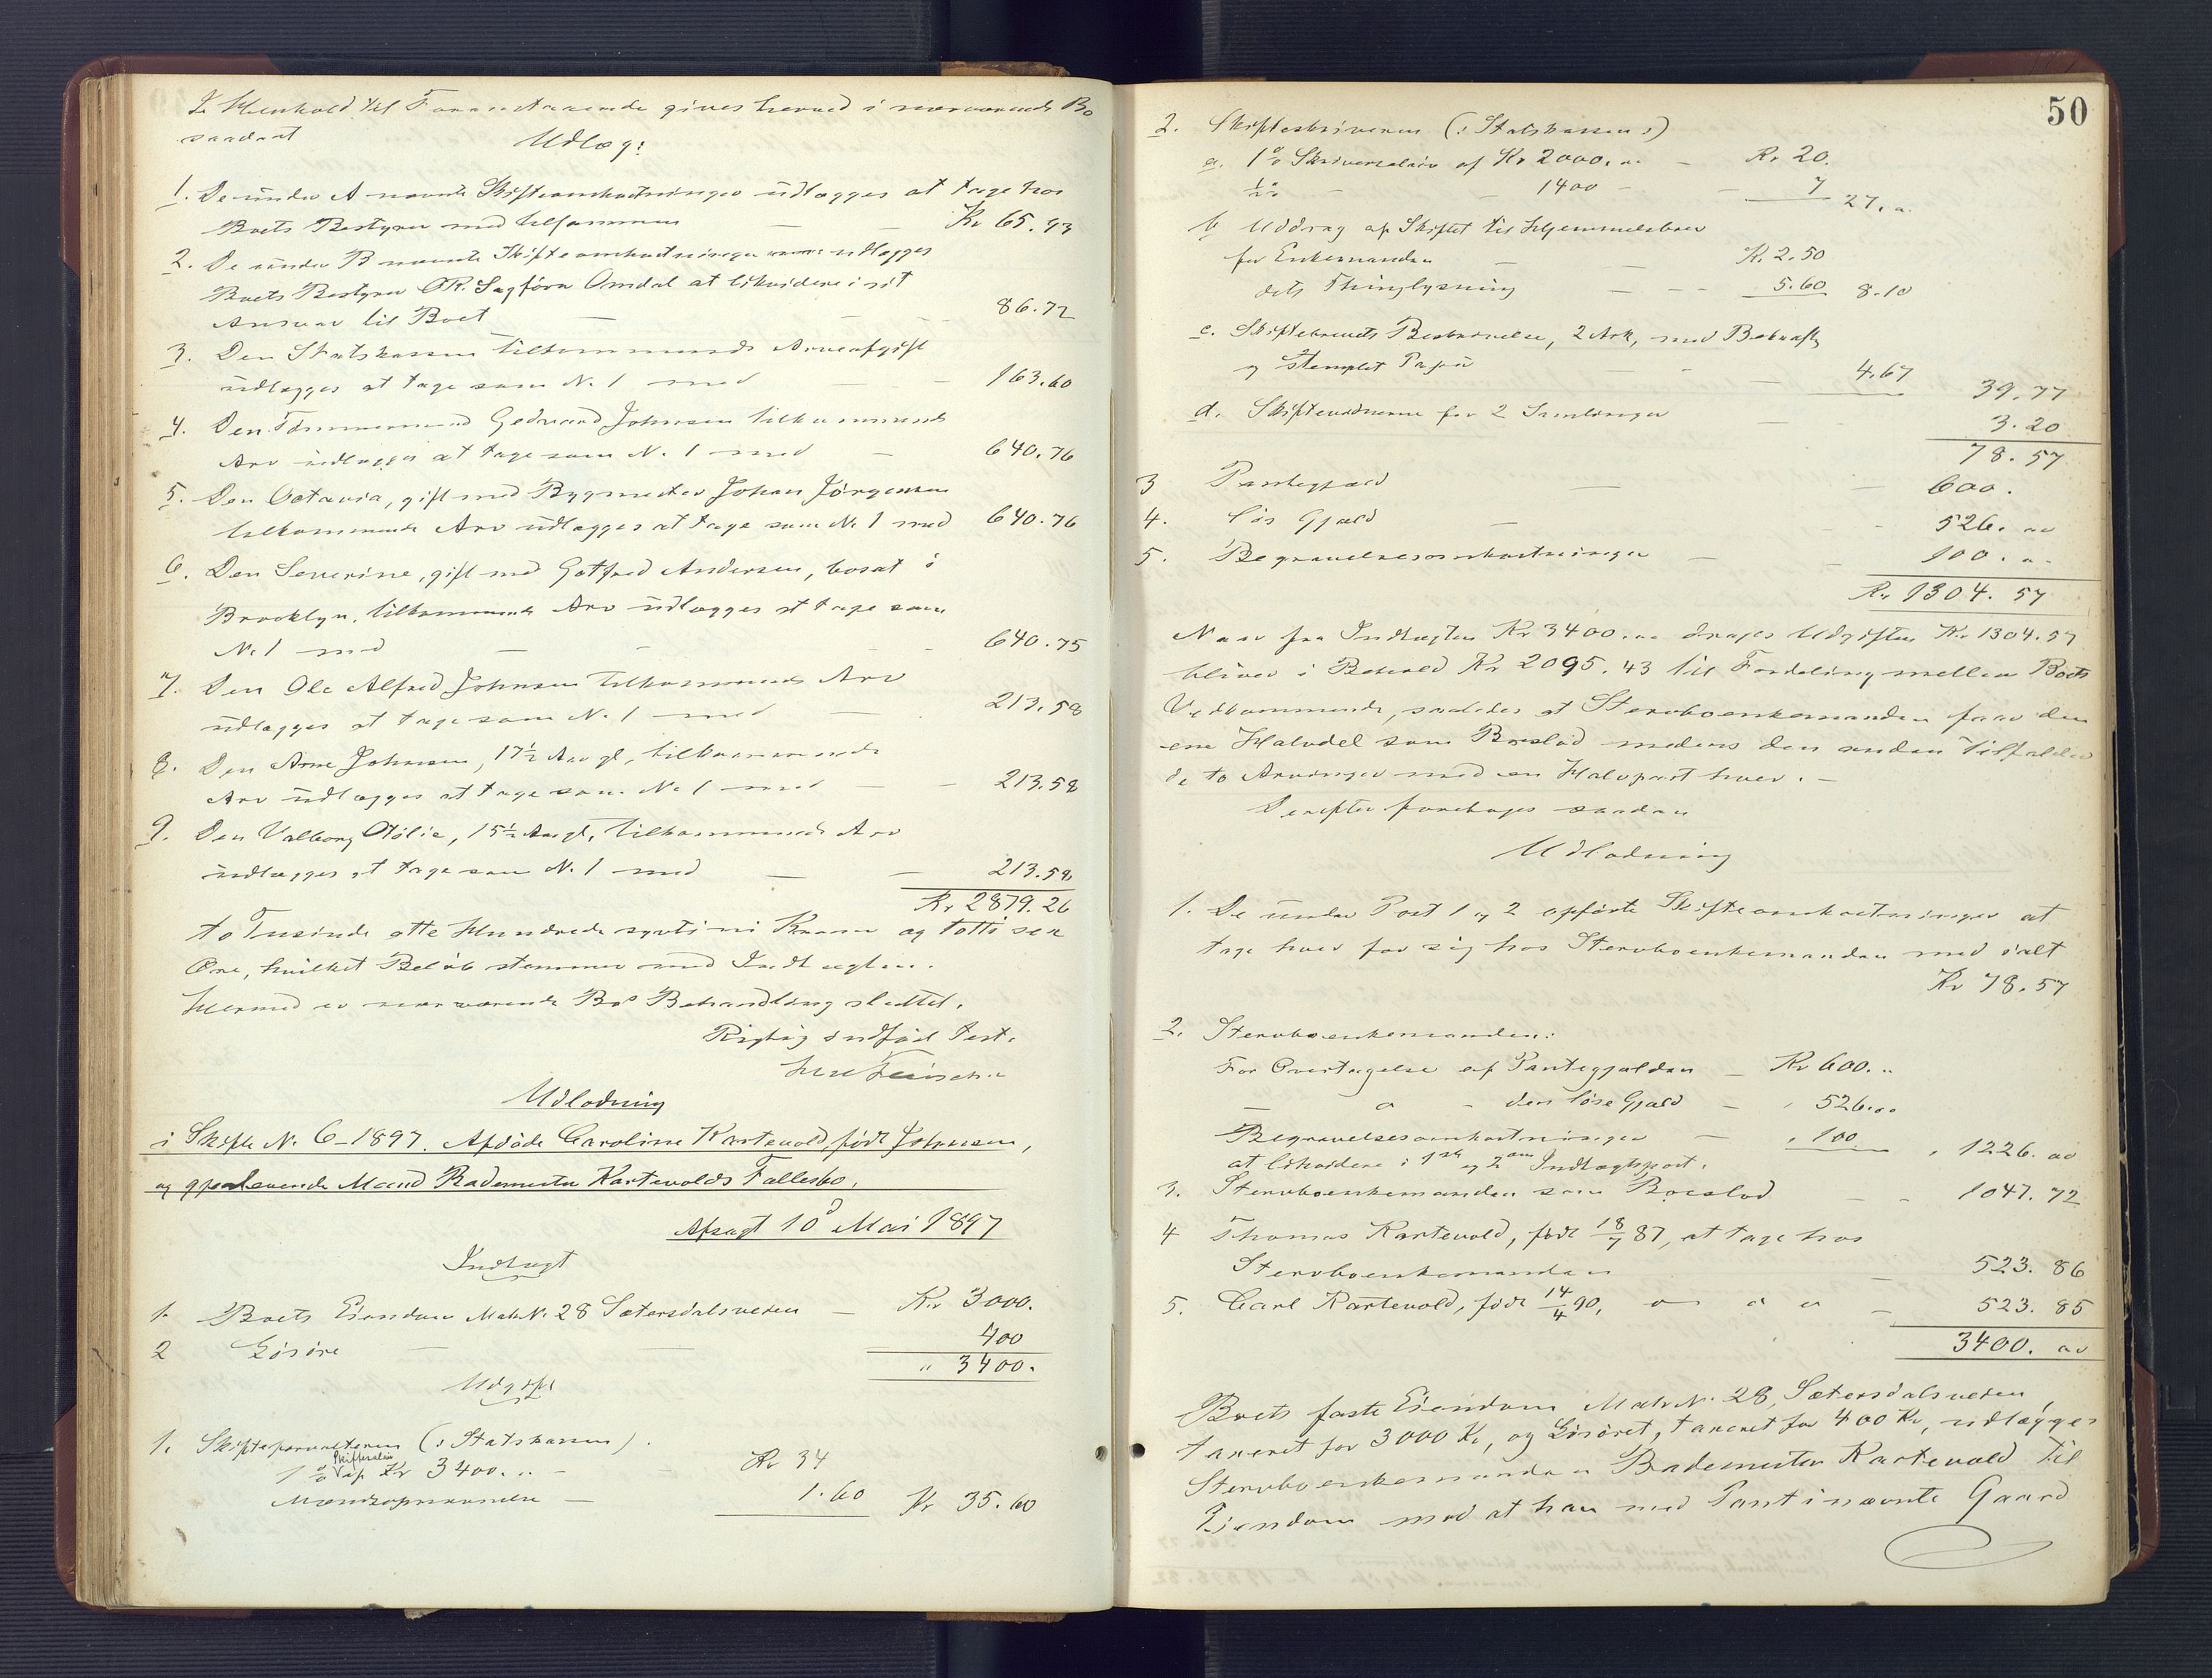 I Henhold til Foranstaaende gives herved i nærværende Bo
saadant
Udlæg:
1. De under A nævnte Skifteomkostninger udlægges at tage hos
Boets Bestyrer med tilsammen — — Kr 65.93
2. De under B nævnte Skifteomkostninger udlægges
Boets Bestyrer OR. Sagfører Omdal at likvidere i sit
Ansvar til Boet — — 86.72
3. Den Statskassen tilkommende Arveafgift
udlægges at tage som N. 1 med — 163.60
4. Den Tømmermand Gedvard Johnsen tilkommende
Arv udlægges at tage som N. 1 med — 640.76
5. Den Octavia, gift med Bygmester Johan Jörgensen
tilkommende Arv udlægges at tage som N. 1 med 640.76
6. Den Severine, gift med Gotfred Andersen, bosat i
Brooklyn, tilkommende Arv udlægges at tage som
N. 1 med — — 640.75
7. Den Ole Alfred Johnsen tilkommende Arv
udlægges at tage som N. 1 med — 213.58
8. Den Arne Johnsen, 17½ Aar gl, tilkommende
Arv udlægges at tage som N. 1 med — — 213.58
9. Den Valborg Otilie, 15½ Aar gl, tilkommende Arv
udlægges at tage som N. 1 med — — 213.58
Kr 2879.26
to Tusinde otte Hundrede sytti ni Kroner og totti sex
Øre, hvilket Beløb stemmer med Indtægten.
Hermed er nærværende Bos Behandling sluttet.
Rigtig indført test.
Udlodning
i Skifte N. 6-1897. Afdøde Caroline Kartevold, født Johnsen,
og gjenlevende Mand Bademester Kartevolds Fællesbo.
Afsagt 10d Mai 1897
Indtægt
1. Boets Eiendom Matr N. 28 Sætersdalsveien — Kr 3000.
2 Løsøre — — 400
" 3400.
Udgift
1. Skifteforvalteren (: Statskassen).
1 % Skiftesalær af Kr 3400. " — Kr 34
Mændsopnævnelse — 1.60 Kr 35.60
50
2. Skifteskriveren (: Statskassen :)
a. 1 % Skriversalær af Kr 2000. " — Kr 20.
½ % — 1400 — — 7 27. "
b Uddrag af Skiftet til Hjemmelsbrev
for Enkemanden — — Kr 2.50
dets Thinglysning — — 5.60 8.10
c. Skiftebrevets Beskrivelse, 2 Ark, med Bekræftg
og stemplet Papir — — 4.67 39.77
d. Skiftevidnerne for 2 Samlinger — 3.20
78.57
3 Pantegjæld — — 600.
4. Løs Gjæld — — 526. "
5. Begravelsesomkostninger — — 100. "
Kr 1304.57
Naar fra Indtægten Kr 3400. " drages Udgiften Kr 1304.57
bliver i Behold Kr 2095.43 til Fordeling mellem Boets
Vedkommende, saaledes at Stervboenkemanden faar den
ene Halvdel som Boeslod medens den anden tilfalder
de to Arvinger med en Halvpart hver. —
Derefter foretages saadan
Udlodning
1. De under Post 1 og 2 opførte Skifteomkostninger at
tage hver for sig hos Stervboenkemanden med ialt
Kr 78.57
2. Stervboenkemanden:
For Overtagelse af Pantegjælden — Kr 600. "
— " - den løse Gjæld — " 526."
Begravelsesomkostninger — " 100 " 1226. "
at likvidere i 1ste og 2den Indtægtspost.
3. Stervboenkemanden som Boeslod — - 1047.72
4 Thomas Kartevold, født 18/7 87, at tage hos
Stervboenkemanden — 523.86
5. Carl Kartevold, født 14/4 90, " " " — 523.85
3400. "
Boets faste Eiendom Matr N. 28, Sætersdalsveien,
taxeret for 3000 Kr, og Løsøret, taxeret for 400 Kr, udlægges
Stervboenkemanden Bademester Kartevold til
Eiendom mod at han med Pant i nævnte Gaard